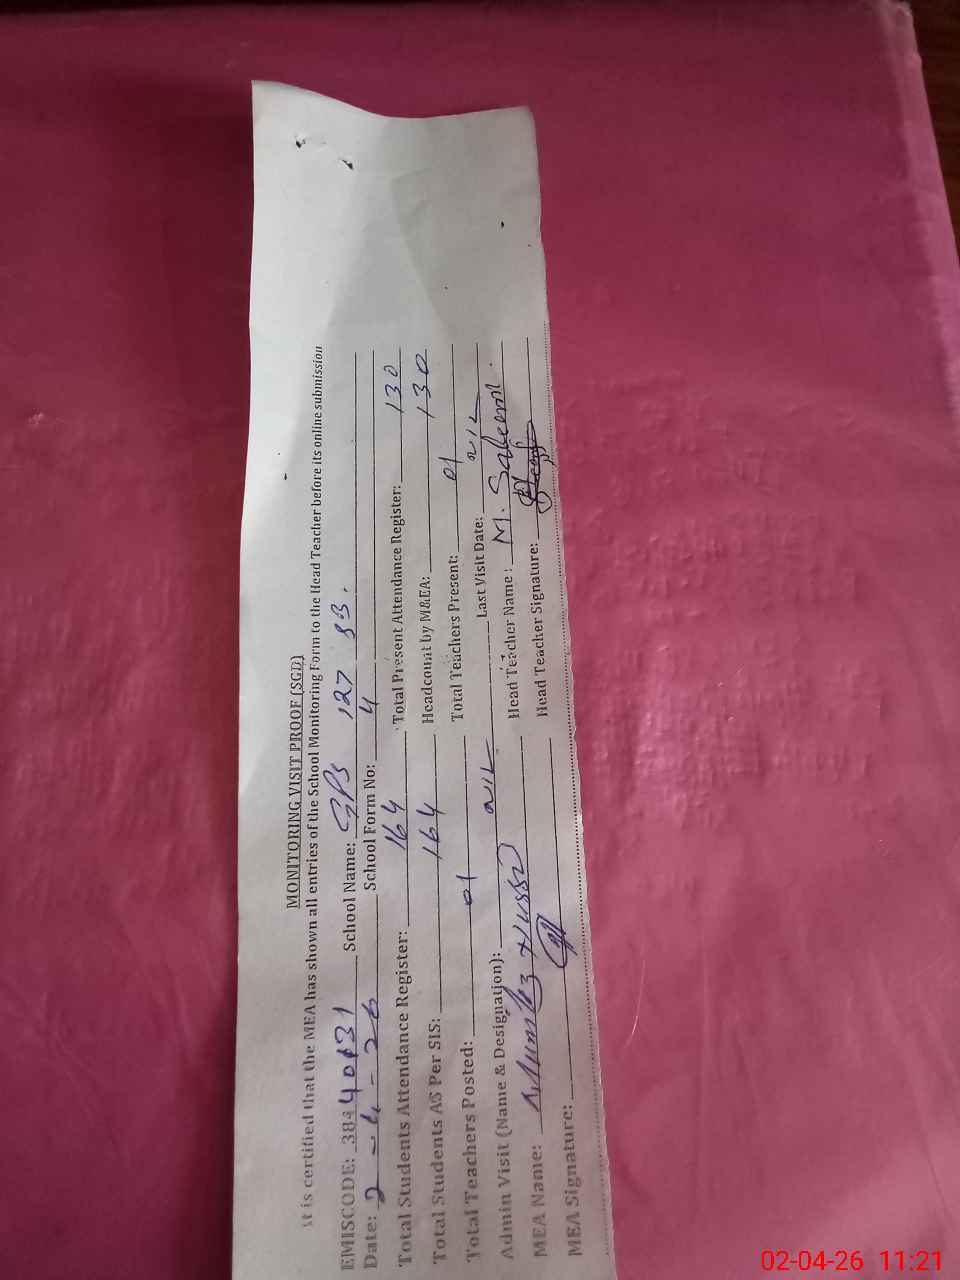 MONITORING VISIT PROOF (SGD)
It is certified that the MEA has shown all entries of the School Monitoring Form to the Head Teacher before its online submission
EMISCODE: 38440131 School Name: GPS 127 SB.
Date: 2-4-26 School Form No: 4
Total Students Attendance Register: 164 Total Present Attendance Register: 130
Total Students AS Per SIS: 164 Headcount by M&EA: 130
Total Teachers Posted: 01 Total Teachers Present: 01
Admin Visit (Name & Designation): NIL Last Visit Date: NIL
MEA Name: Mumtaz Hussain Head Teacher Name: M. Saleem.
MEA Signature: Head Teacher Signature:
02-04-26 11:21